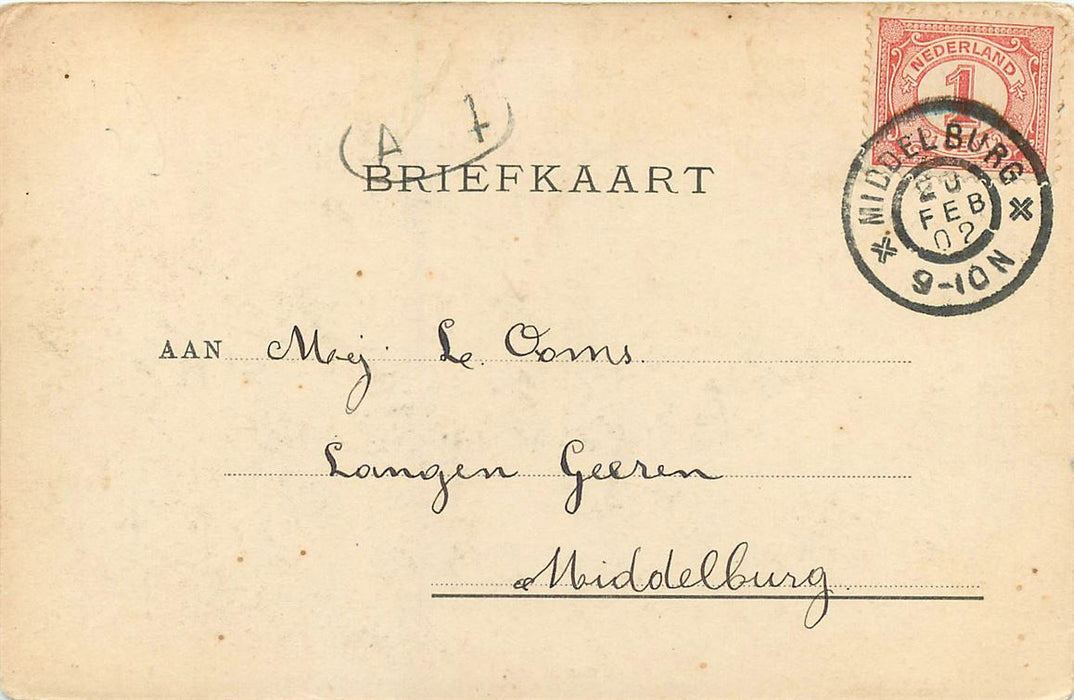 NEDERLAND
1
MIDDELBURG
FEB
02
9-10N
A 7
BRIEFKAART
AAN Mej. L. Ooms.
Langen Geeren
Middelburg